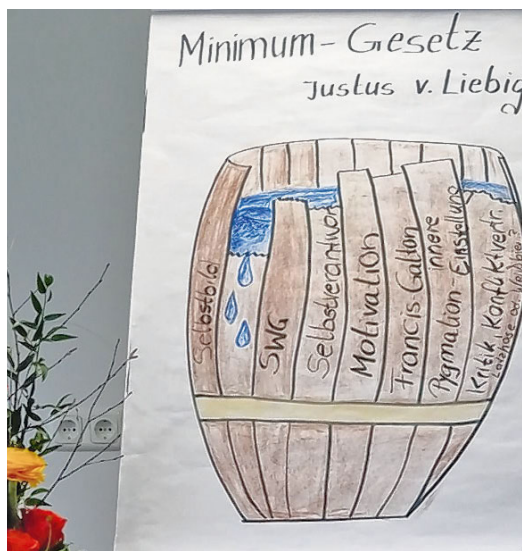 Minimum-Gesetz
Justus v. Liebig
Selbstbild
SWG
Selbstverantwor
Motivation
Francis Galton
Pygmation-
innere
Einstellung
Kritik Konfliktvertr.